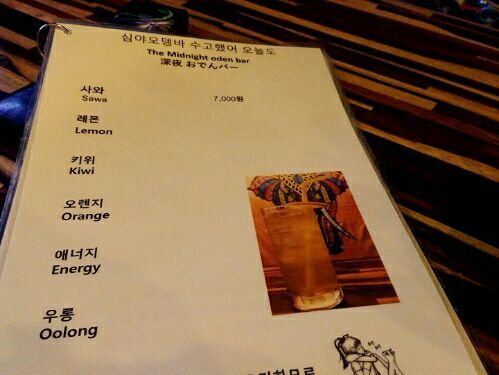 심야오뎅바 수고했어 오늘도
The Midnight oden bar
深夜 おでんバー
사와
Sawa 7,000원
레몬
Lemon
키위
Kiwi
오렌지
Orange
애너지
Energy
우롱
Oolong